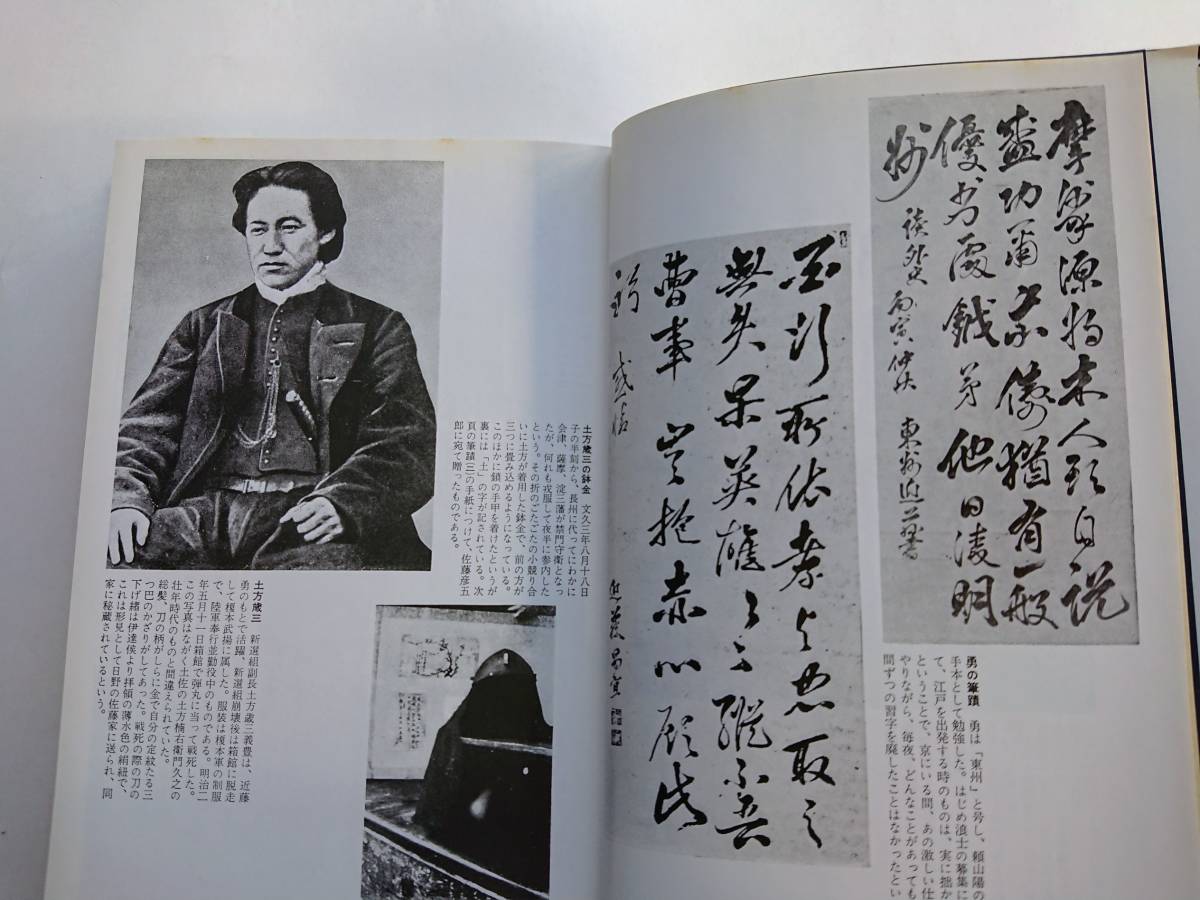 摩挲源将木人頭自説
盛功爾我儔猶有一般
優劣處鉞矛他日凌明
州
読外史 丙寅仲秋 東州近藤書
百行所依孝与忠取之
無失果英雄々々縦不吾
曹事豈抱赤心願此
躬
近藤昌宜
勇の筆蹟　勇は「東州」と号し、頼山陽の
手本として勉強した。はじめ浪士の募集に
て、江戸を出発する時のものは、実に拙か
ということで、京にいる間、あの激しい仕
やりながら、毎夜、どんなことがあっても
間ずつの習字を廃したことはなかったとい
土方歳三の鉢金　文久三年八月十八日
子の半刻から、長州に代ってにわかに
会津、薩摩、淀三藩が禁門守衛となっ
たが、何れも戎服して夜半に参内した
という。その折のごたごたの小競り合
いに土方が着用した鉢金で、前の方が
三つに畳み込めるようになっている。
このほかに鎖の手甲を着けたというが
裏には「土」の字が記されている。次
頁の筆蹟㈡の手紙につけて、佐藤彦五
郎に宛て贈ったものである。
土方歳三　新選組副長土方歳三義豊は、近藤
勇のもとで活躍、新選組崩壊後は箱館に脱走
して榎本武揚に属した。服装は榎本軍の制服
で、陸軍奉行並勤役中のものである。明治二
年五月十一日箱館で弾丸に当って戦死した。
この写真はながく土佐の土方楠右衛門久之の
壮年時代のものと間違えられていた。
総髪、刀の柄がしらに金で自分の定紋たる三
つ巴のかざりがしてあった。戦死の際の刀の
下げ緒は伊達侯より拝領の薄水色の絹紐で、
これは形見として日野の佐藤家に送られ、同
家に秘蔵されているという。